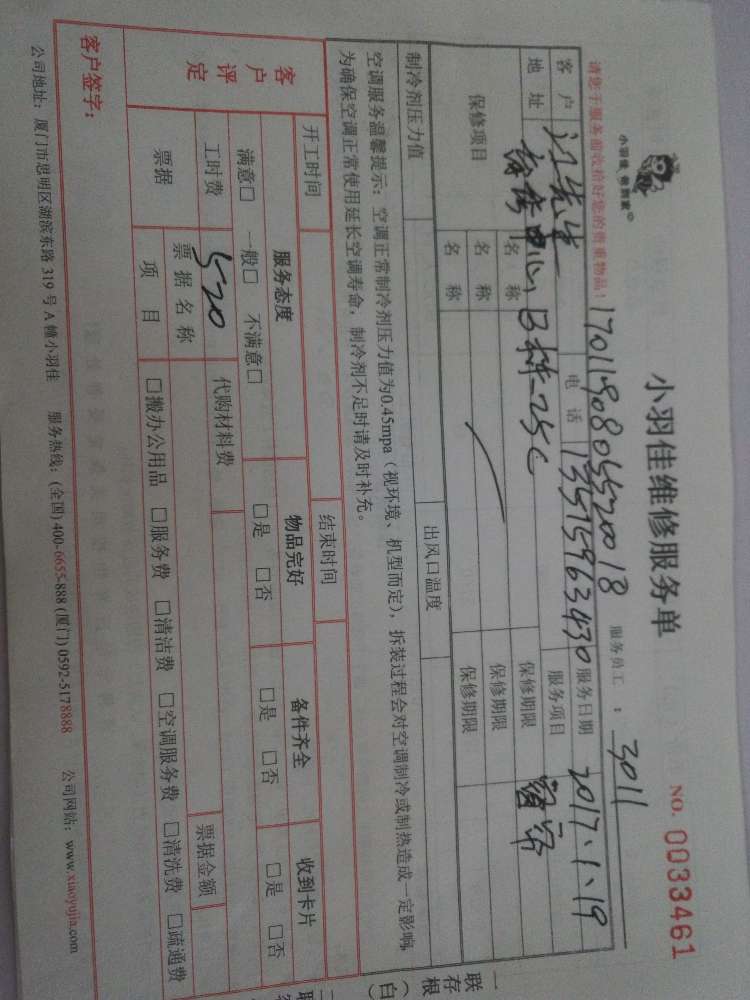 小羽佳 您到家
小羽佳维修服务单
NO. 0033461
请您于服务前收拾好您的贵重物品!
1701190805520018
服务员工 : 3011
客户 江先生 电话 13515963430 服务日期 2017.1.19
地址 中心B栋25C 服务项目
保修项目 名称 保修期限
名称 保修期限
名称 保修期限
制冷剂压力值 出风口温度
空调服务温馨提示:空调正常制冷剂压力值为0.45mpa(视环境、机型而定),拆装过程会对空调制冷或制热造成一定影响,
为确保空调正常使用延长空调寿命,制冷剂不足时请及时补充。
开工时间 结束时间
客户评定 服务态度 物品完好 备件齐全 收到卡片
满意□ 一般□ 不满意□ □是 □否 □是 □否 □是 □否
工时费 520 代购材料费
票据 票据名称 票据金额
项目 □搬办公用品 □服务费 □清洁费 □空调服务费 □清洗费 □疏通费
客户签字:
公司地址:厦门市思明区湖滨东路 319 号 A 幢小羽佳 服务热线:(全国) 400-6655-888 (厦门) 0592-5178888 公司网站:www.xiaoyujia.com
一联存根(白
二联